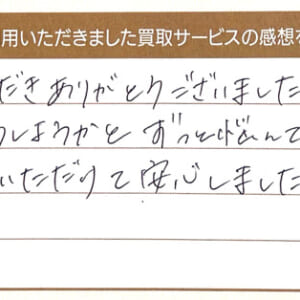 用いただきました買取サービスの感想を
だきありがとうございました
うしようかと ずっとなやんで
いただけて安心しました